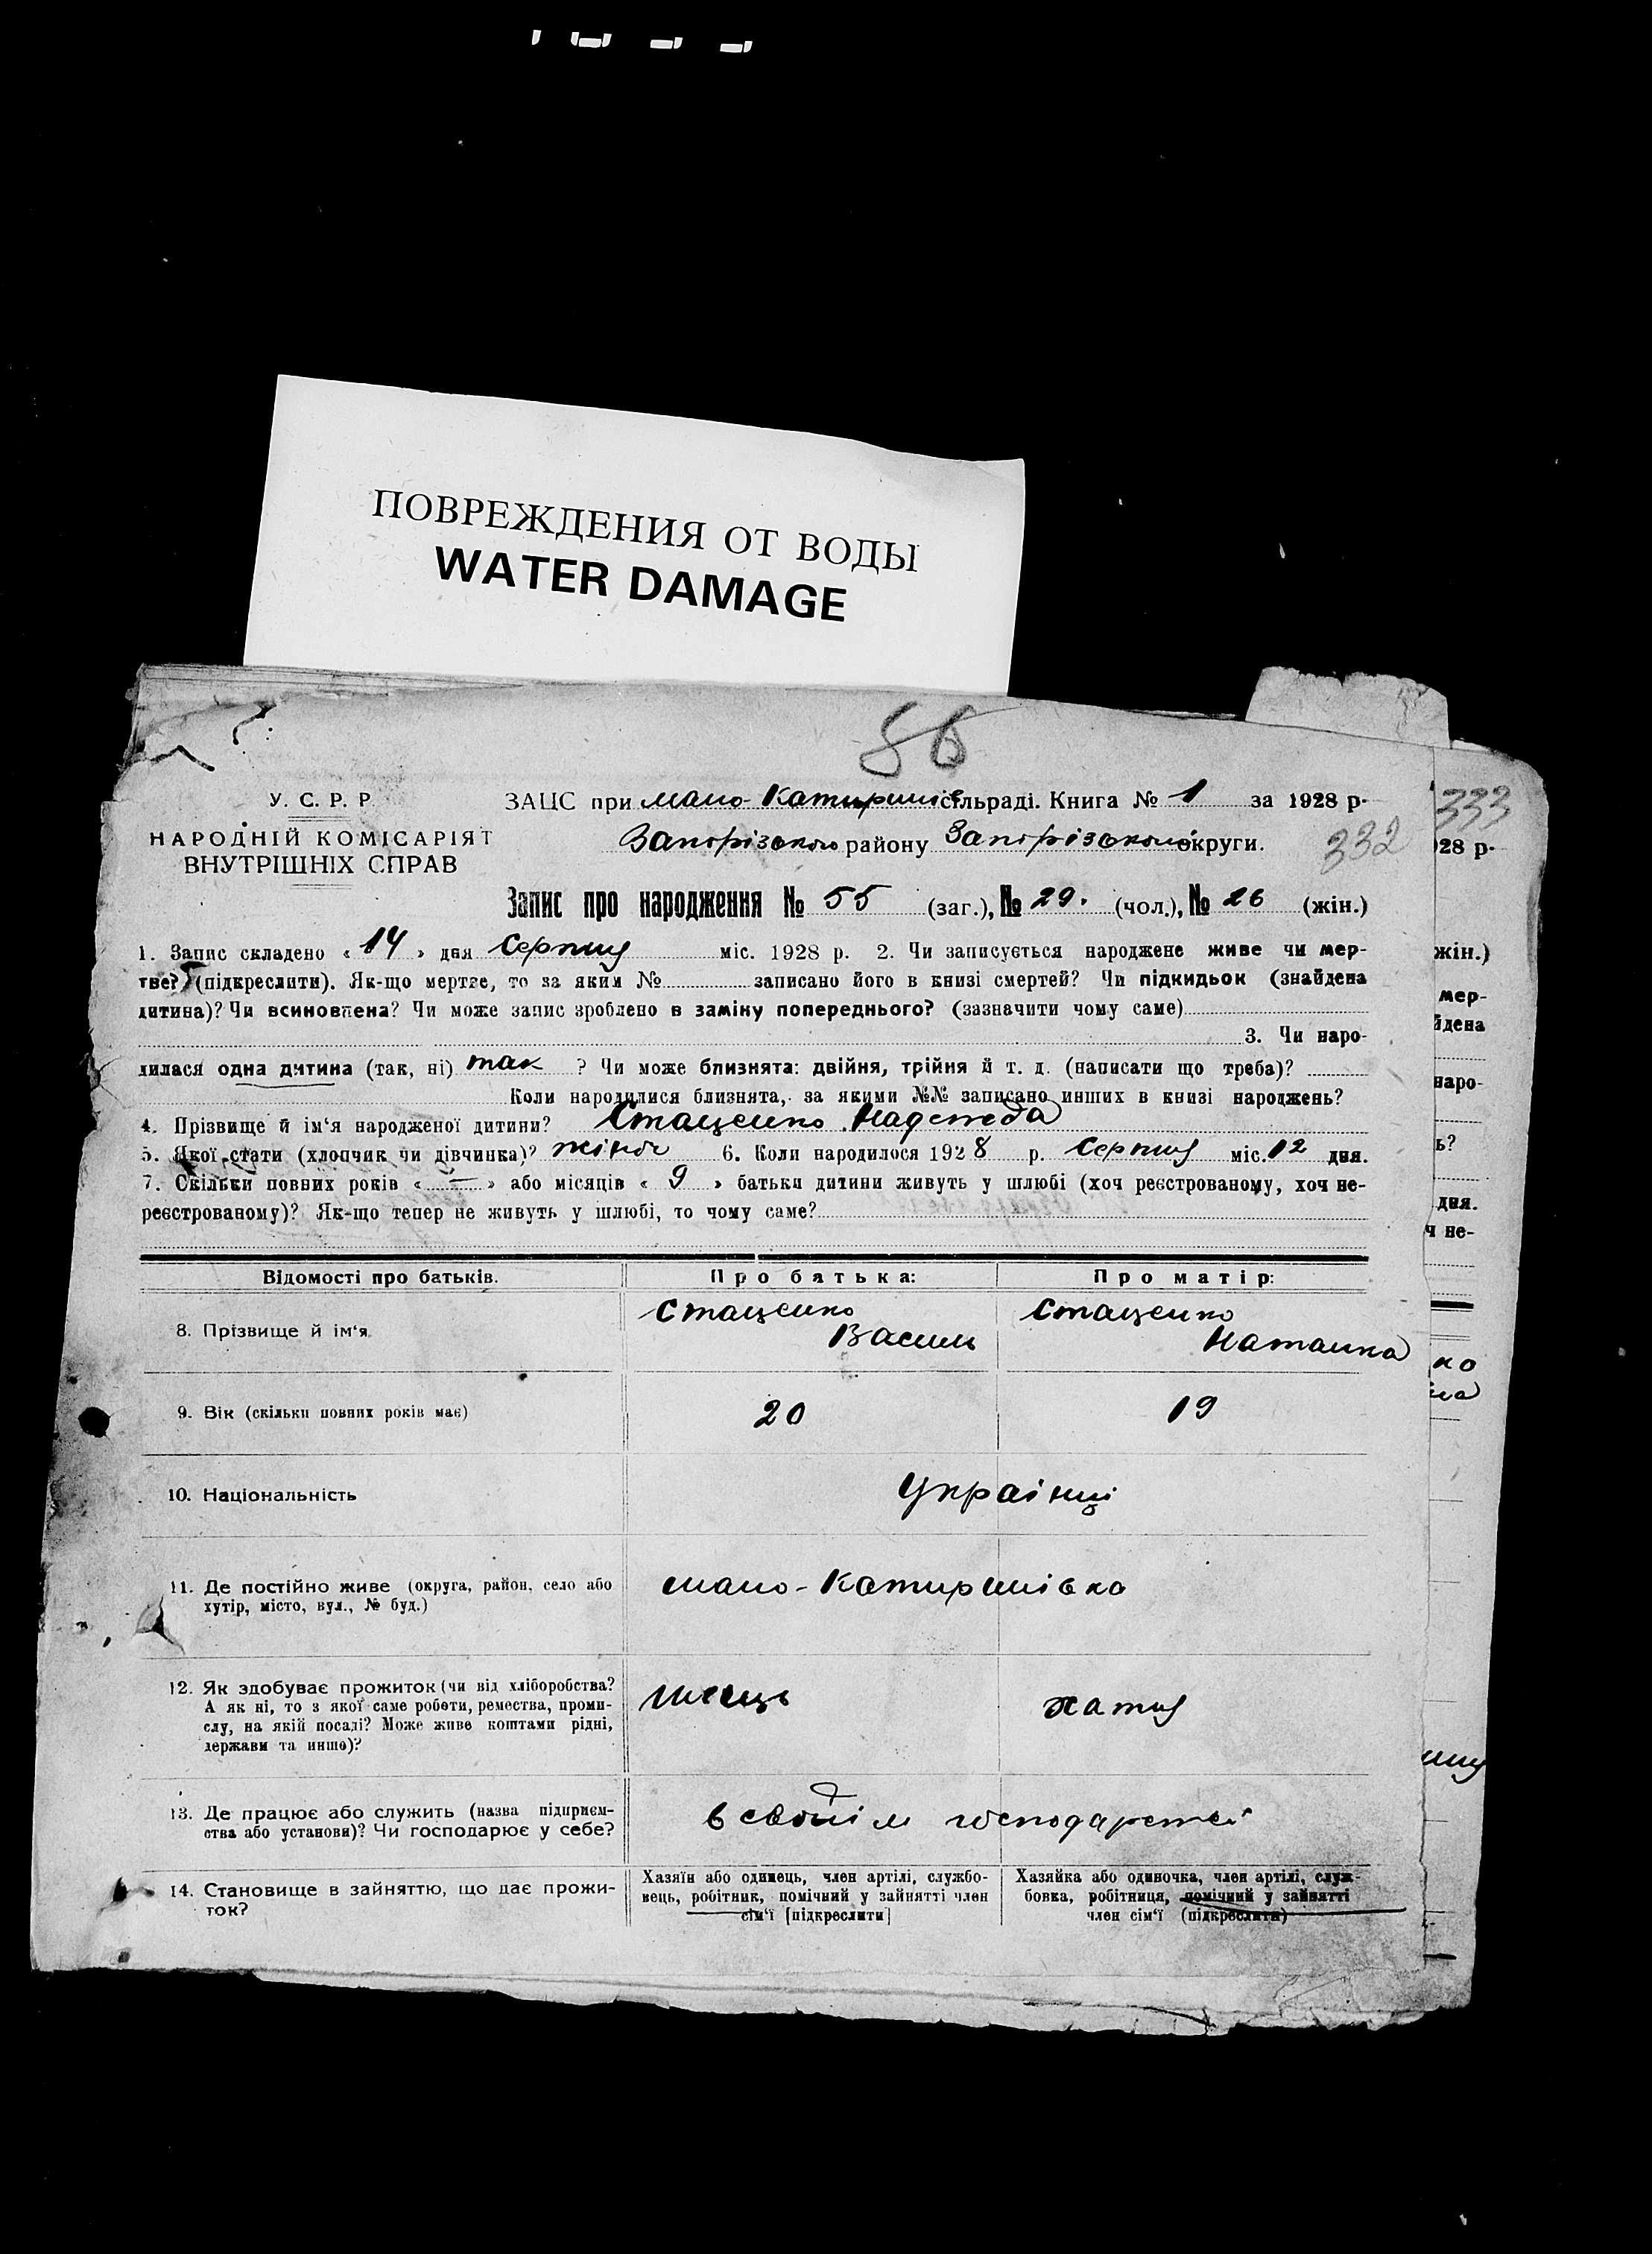 ПОВРЕЖДЕНИЯ ОТ ВОДЫ
WATER DAMAGE
86
У. С. Р. Р.
НАРОДНІЙ КОМІСАРІЯТ
ВНУТРІШНІХ СПРАВ
ЗАЦС при мало-Катиршів сільраді. Книга № 1 за 1928 р.
Запорізького району Запорізького округи.
332
333
28 р.
Запис про народження № 55 (заг.), № 29. (чол.), № 26 (жін.)
1. Запис складено « 14 » дня Серпня міс. 1928 р. 2. Чи записується народжене живе чи мер-
тве? (підкреслити). Як-що мертве, то за яким № записано його в книзі смертей? Чи підкидьок (знайдена
дитина)? Чи всиновлена? Чи може запис зроблено в заміну попереднього? (зазначити чому саме)
3. Чи наро-
дилася одна дитина (так, ні) так ? Чи може близнята: двійня, трійня й т. д. (написати що треба)?
Коли народилися близнята, за якими №№ записано инших в книзі народжень?
4. Прізвище й ім'я народженої дитини? Стаценко Надежда
5. Якої стати (хлопчик чи дівчинка)? жіноч 6. Коли народилося 1928 р. Серпня міс. 12 дня.
7. Скільки повних років « — » або місяців « 9 » батьки дитини живуть у шлюбі (хоч реєстрованому, хоч не-
реєстрованому)? Як-що тепер не живуть у шлюбі, то чому саме?
жін.)
мер-
йдена
наро-
ь?
дня.
ч не-
Відомості про батьків.
Про батька:
Про матір:
8. Прізвище й ім'я
Стаценко
Василь
Стаценко
Наталка
9. Вік (скільки повних років має)
20
19
10. Національність
Українці
11. Де постійно живе (округа, район, село або
хутір, місто, вул., № буд.)
мало-Катиршівка
12. Як здобуває прожиток (чи від хліборобства?
А як ні, то з якої саме роботи, ремества, проми-
слу, на якій посаді? Може живе коштами рідні,
держави та инше)?
швець
хатня
13. Де працює або служить (назва підприєм-
ства або установи)? Чи господарює у себе?
в своїм господарстві
14. Становище в зайняттю, що дає прожи-
ток?
Хазяїн або одинець, член артілі, службо-
вець, робітник, помічний у зайнятті член
сім'ї [підкреслити]
Хазяйка або одиночка, член артілі, служ-
бовка, робітниця, помічний у зайнятті
член сім'ї (підкреслити)